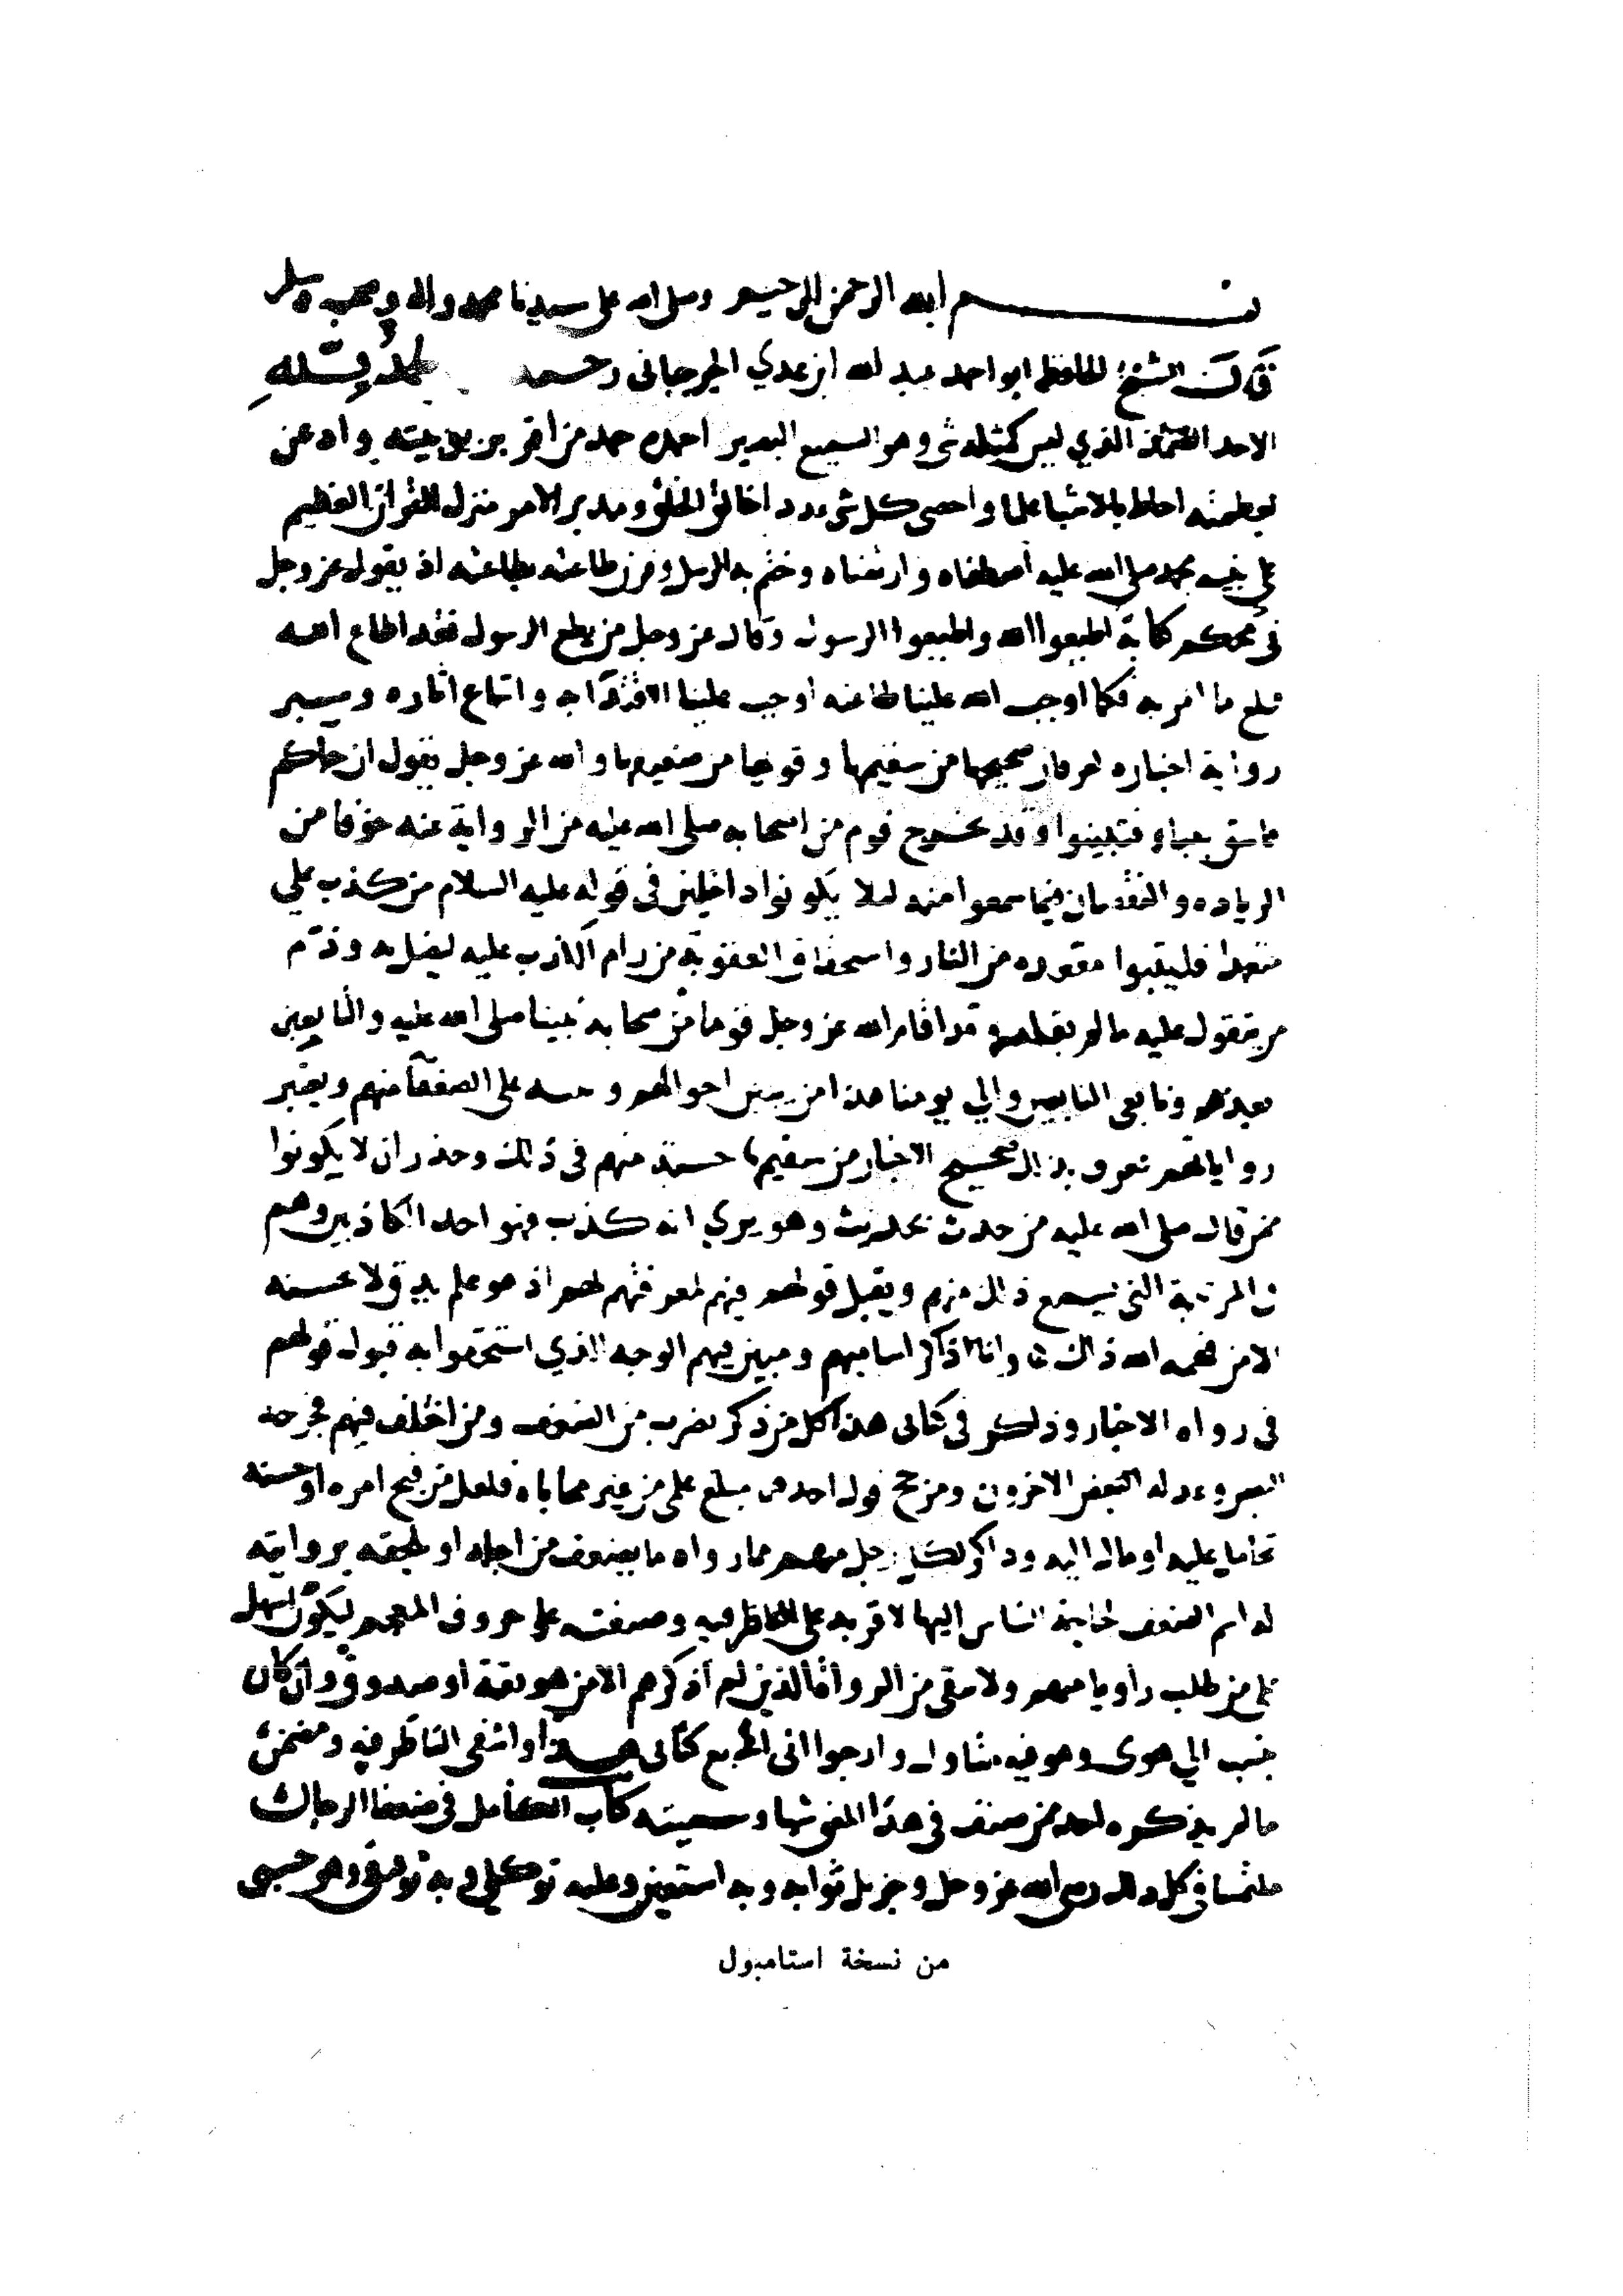 بسم الله الرحمن الرحيم وصلى الله على سيدنا محمد واله وصحبه وسلم
قال الشيخ الحافظ ابو احمد عبد الله ابن عدي الجرجاني رحمه الحمد لله
الاحد الصمد الذي ليس كمثله شي وهو السميع البصير احمده حمد من اقر بربوبيته واذعن
لعظمته احاط بالاشيا علما واحصى كل شي عددا خالق الخلق ومدبر الامر منزل القران العظيم
على نبيه محمد صلى الله عليه اصطفاه وارتضاه وختم به الرسل وقرن طاعته بطاعته اذ يقول عز وجل
في محكم كتابه اطيعوا الله واطيعوا الرسول وقال عز وجل من يطع الرسول فقد اطاع الله
فبلغ ما امر به فكما اوجب الله علينا طاعته اوجب علينا الاقتدا به واتباع اثاره
رواية اخباره لعرفان صحيحها من سقيمها وقويها من ضعيفها والله عز وجل يقول ان جاكم
فاسق بنباء فتبينوا وقد تحرج قوم من اصحابه صلى الله عليه من الرواية عنه خوفا من
الزياده والنقصان فيما سمعوا منه ليلا يكونوا داخلين في قوله عليه السلام من كذب علي
متعمدا فليتبوا مقعده من النار واستحقاق العقوبة من رام الكذب عليه ليضل به وذم
من يتقول عليه ما لم يقله وقد اقام الله عز وجل قوما من صحابة نبينا صلى الله عليه والتابعين
بعدهم وتابعي التابعين والي يومنا هذا من يبين احوالهم وينبه على الضعفا منهم ويعتبر
رواياتهم لتعرف بذلك صحيح الاخبار من سقيمها حسبة منهم في ذلك وحذر ان لا يكونوا
ممن قال صلى الله عليه من حدث بحديث وهو يري انه كذب فهو احد الكاذبين وهم
في المرتبة التي يسمع ذلك منهم ويقبل قولهم فيهم لمعرفتهم لهم اذ هو علم يدق ولا يحسنه
الا من فهمه الله ذلك وانا ذاكر اساميهم ومبين فيهم الوجه الذي استحقوا به قبول قولهم
في رواه الاخبار وذلك في كتابي هذا كل من ذكر بضرب من الضعف ومن اختلف فيهم فجرحه
البعض وعدله البعض الاخرون ومرجح قول احدهما مبلغ علمي من غير محاباه فلعل من قبح امره او حسنه
تحامل عليه او مال اليه وذاكر لكل رجل منهم مما رواه ما يضعف من اجله او يلحقه بروايته
له اسم الضعف لحاجة الناس اليها لاقربه على الناظر فيه وصنفته على حروف المعجم ليكون اسهل
على من طلب راويا منهم ولا يبقى من الرواة الذين لم اذكرهم الا من هو ثقة او صدوق وان كان
ينسب الي هوى وهو فيه متاول وارجوا اني اجمع كتابي هذا واشفي الناظر فيه ومضمن
ما لم يذكره احد ممن صنف في هذا المعنى شيا وسميته كتاب الكامل في ضعفا الرجال
ملتمسا في كل ذلك رضى الله عز وجل وجزيل ثوابه وبه استعين وعليه توكلي وبه توفيقي وهو حسبي
من نسخة استامبول